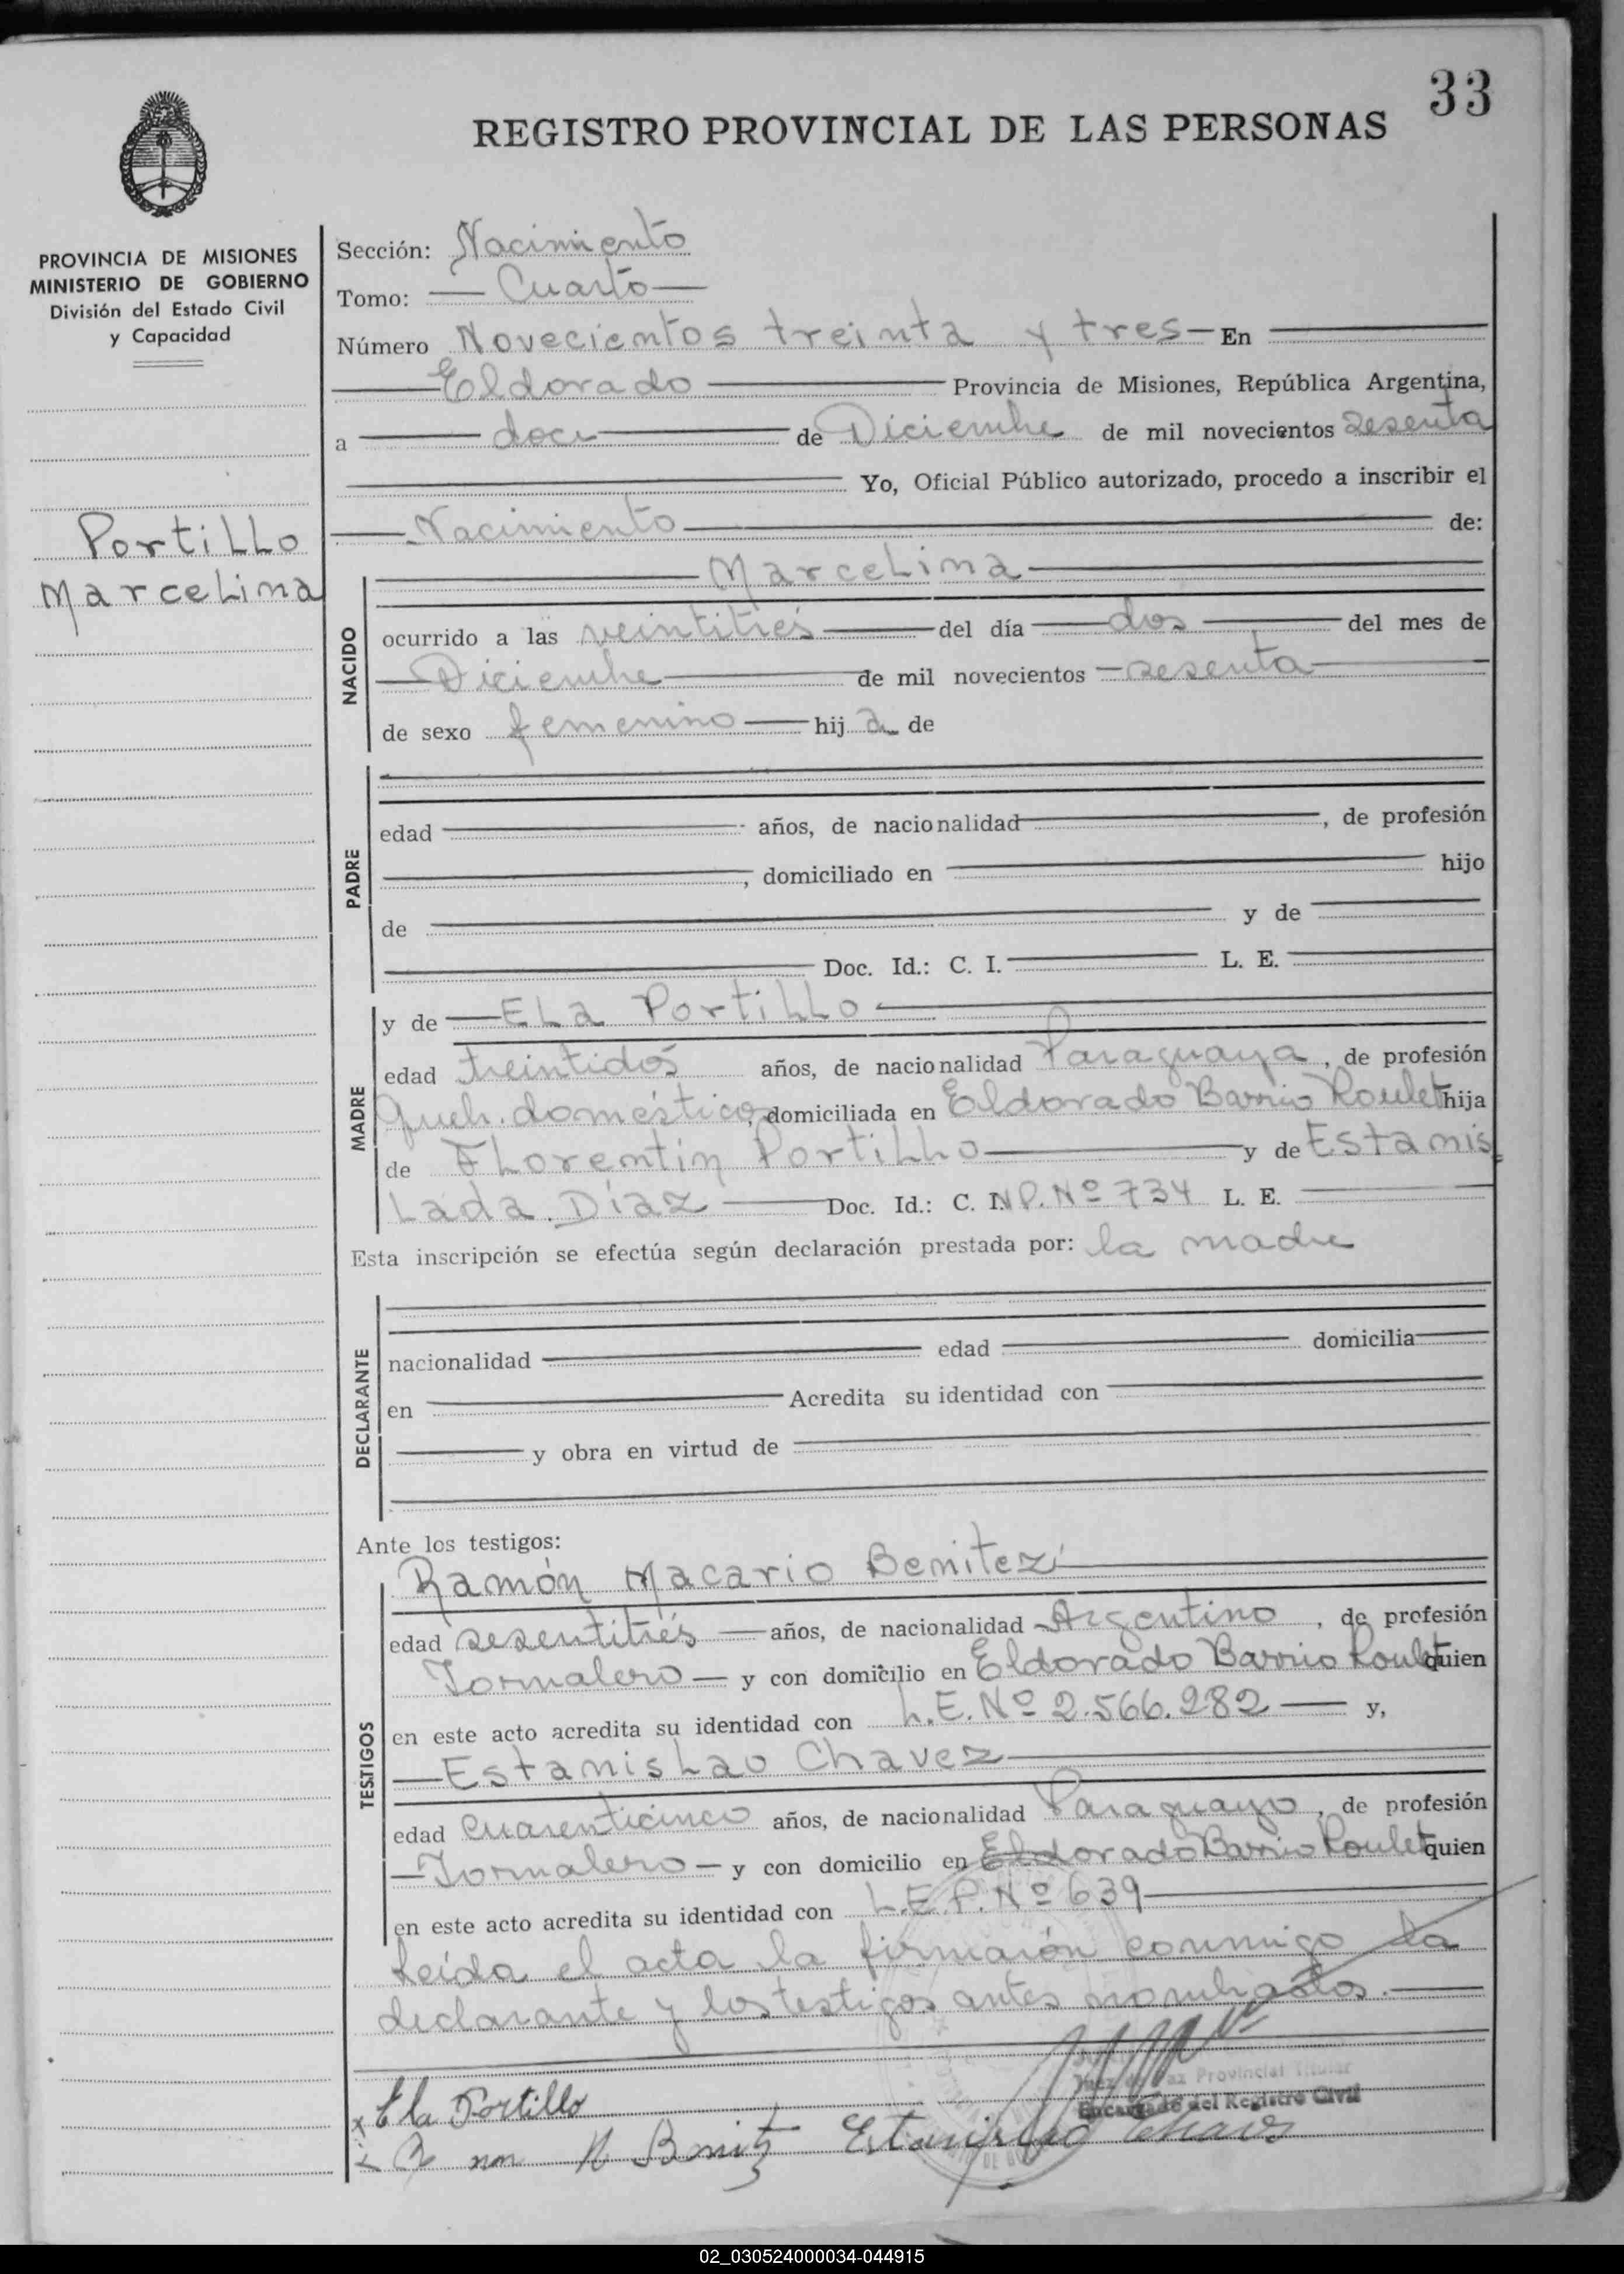 33
REGISTRO PROVINCIAL DE LAS PERSONAS
PROVINCIA DE MISIONES
MINISTERIO DE GOBIERNO
División del Estado Civil
y Capacidad
Portillo
Marcelina
Sección: Nacimiento
Tomo: Cuarto
Número Novecientos treinta y tres En
Eldorado Provincia de Misiones, República Argentina,
a doce de Diciembre de mil novecientos sesenta
Yo, Oficial Público autorizado, procedo a inscribir el
Nacimiento de:
NACIDO
Marcelina
ocurrido a las veintitrés del día dos del mes de
Diciembre de mil novecientos sesenta
de sexo femenino hija de
PADRE
edad años, de nacionalidad , de profesión
, domiciliado en hijo
de y de
Doc. Id.: C. I. L. E.
MADRE
y de Ela Portillo
edad treintidós años, de nacionalidad Paraguaya, de profesión
queh. doméstico, domiciliada en Eldorado Barrio Roulet hija
de Florentín Portillo y de Estanis
lada Díaz Doc. Id.: C. I. P. Nº 734 L. E.
Esta inscripción se efectúa según declaración prestada por: la madre
DECLARANTE
nacionalidad edad domicilia
en Acredita su identidad con
y obra en virtud de
Ante los testigos:
TESTIGOS
Ramón Macario Benitez
edad sesentitrés años, de nacionalidad Argentino, de profesión
Jornalero y con domicilio en Eldorado Barrio Roulet quien
en este acto acredita su identidad con L.E. Nº 2.566.282 y,
Estanislao Chavez
edad cuarenticinco años, de nacionalidad Paraguayo, de profesión
Jornalero y con domicilio en Eldorado Barrio Roulet quien
en este acto acredita su identidad con L.E.P. Nº 639
Leída el acta la firmarón conmigo la
declarante y los testigos antes nombrados.
Juez de Paz Provincial Titular
Encargado del Registro Civil
Ela Portillo
Estanislao Chavez
02_030524000034-044915